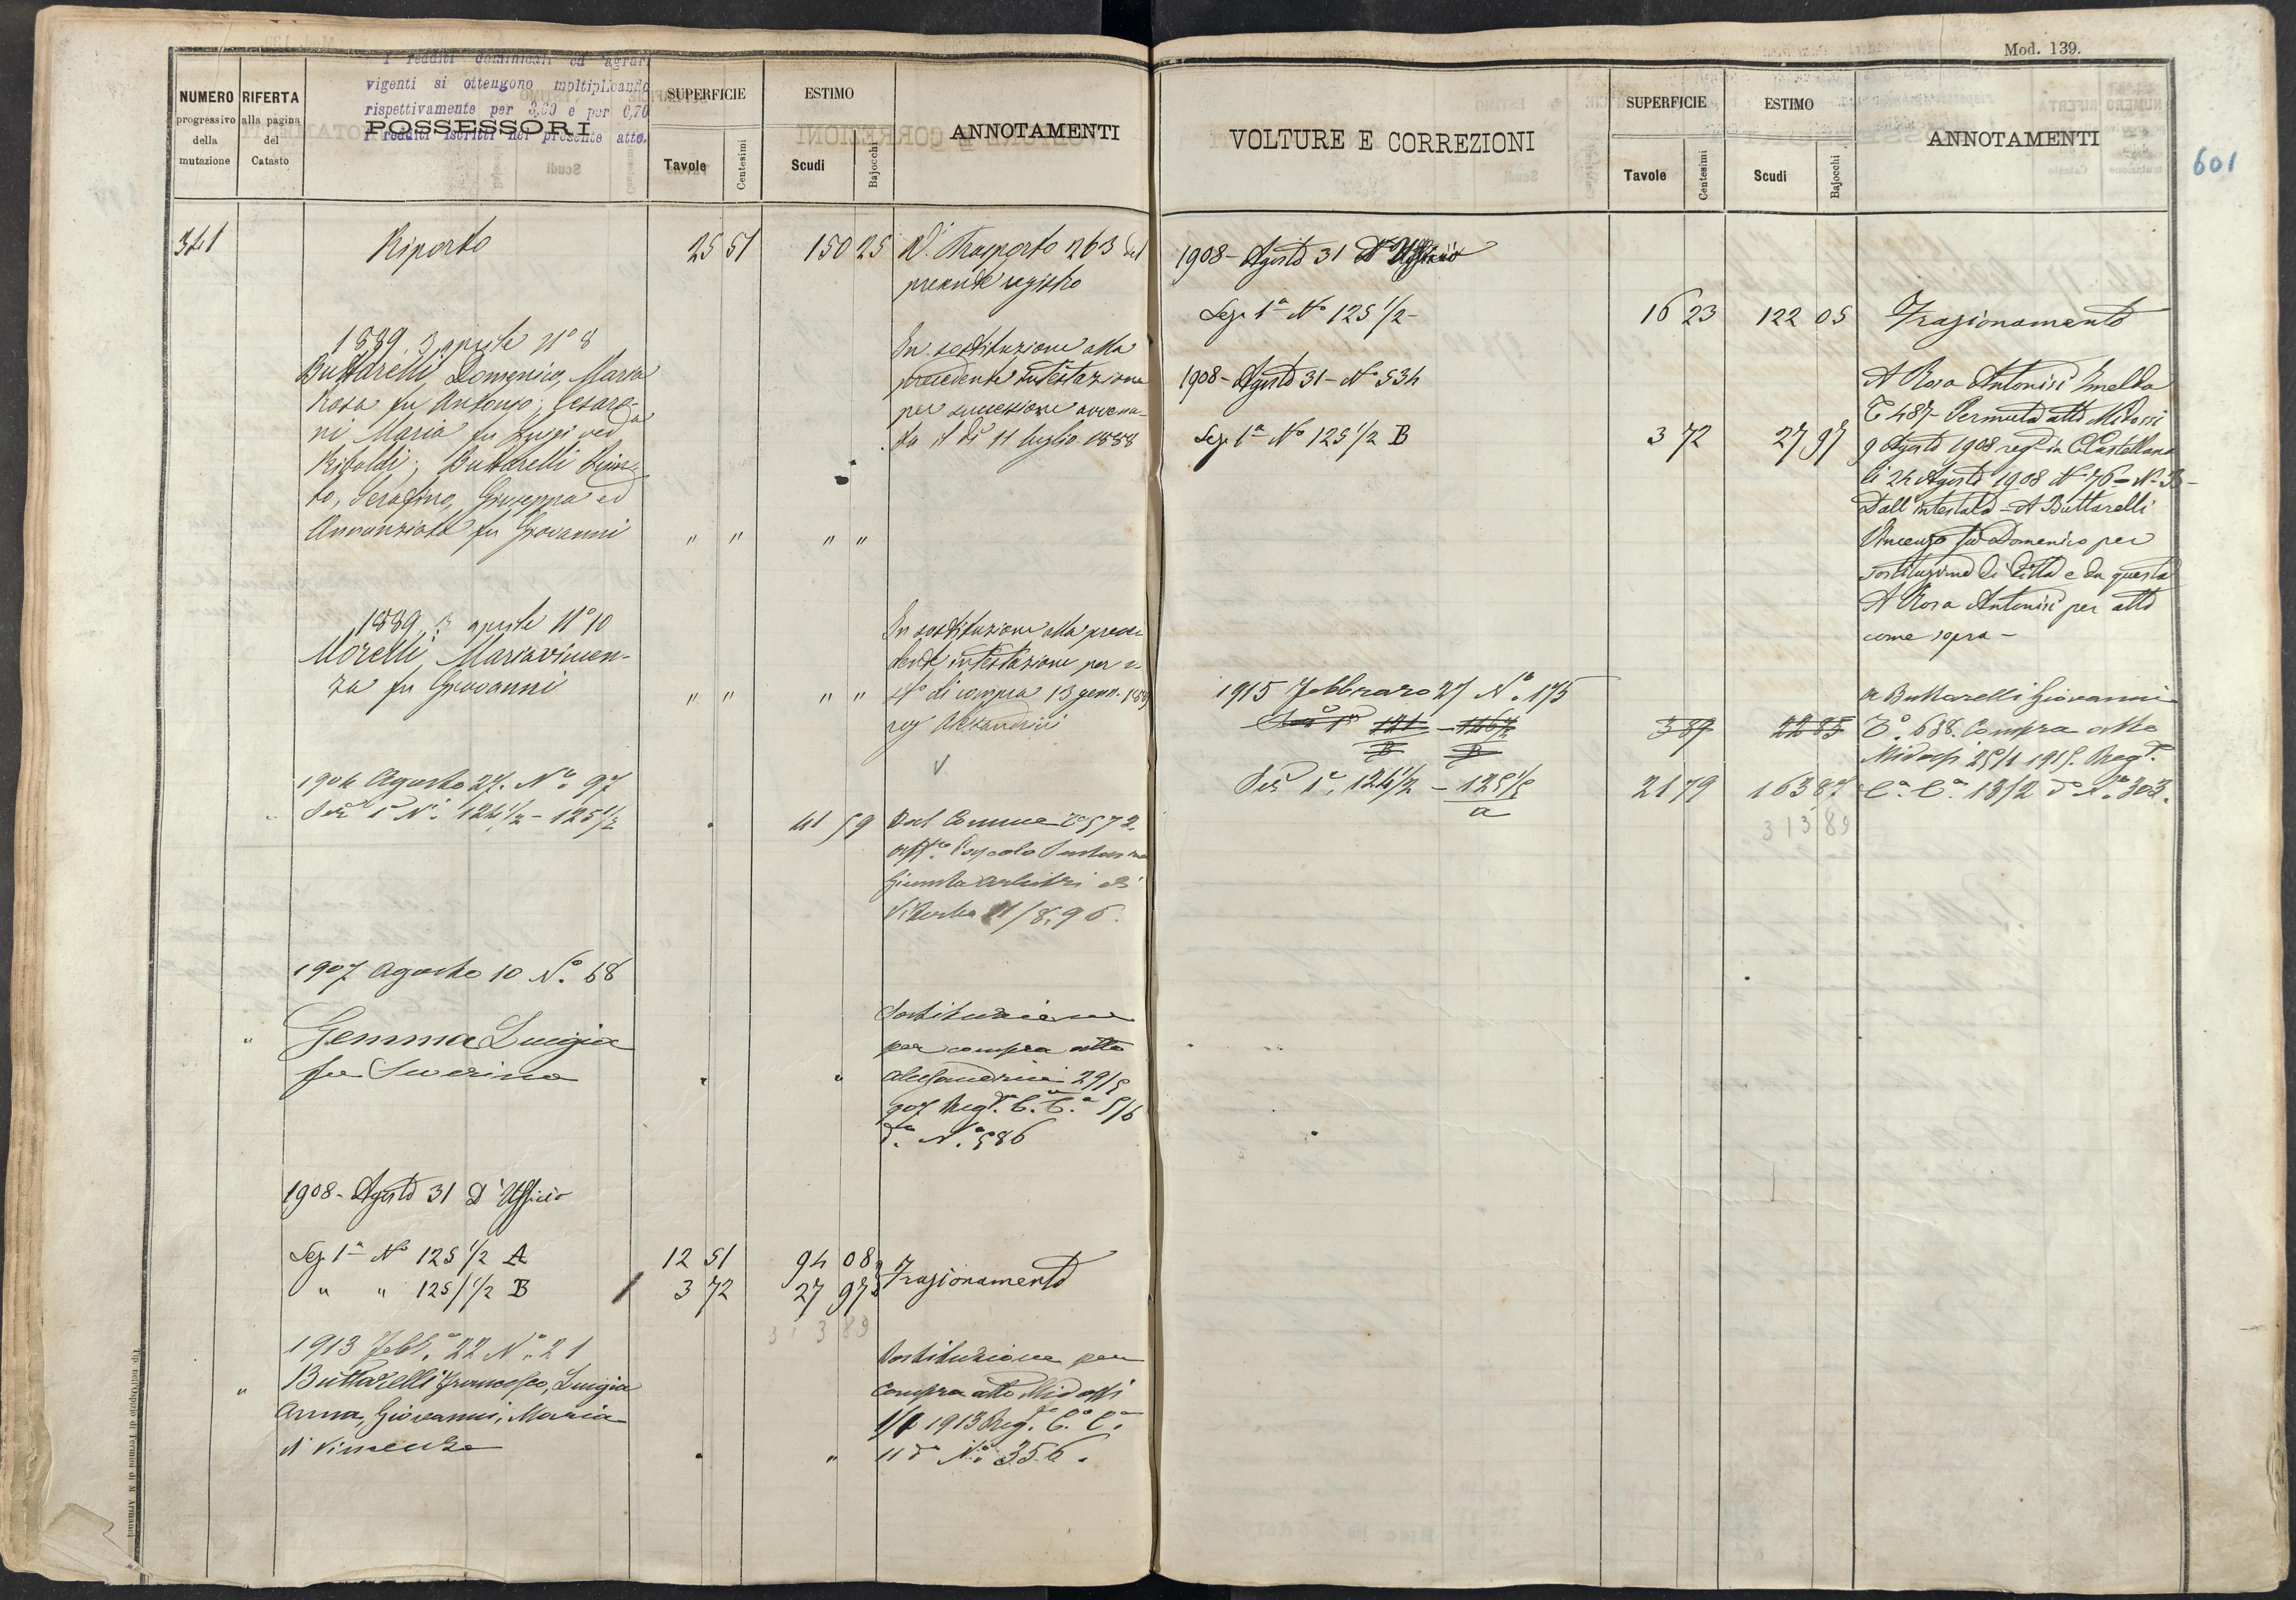 I redditi dominicali ed agrari
vigenti si ottengono moltiplicando
rispettivamente per 3,30 e per 0,70
i redditi iscritti nel presente atto.
NUMERO progressivo della mutazione
RIFERTA alla pagina del Catasto
POSSESSORI
SUPERFICIE
Tavole
Centesimi
ESTIMO
Scudi
Bajocchi
ANNOTAMENTI
341 Riporto 25 51 150 25 V. Trasporto 263 del
presente registro
1889 3 aprile N° 8
Buttarelli, Domenico, Maria
Rosa fu Antonio, Cesaro-
ni Maria fu Luigi ved
Riboldi; Buttarelli
to, Serafino, Giuseppa ed
Annunziata fu Giovanni " " " "
In sostituzione alla
precedente intestazione
per successione avvenu-
ta il dì 11 luglio 1888
1889, 3 aprile N° 10
Morelli, Mariavincen-
za fu Giovanni " " " "
In sostituzione alla prece
dente intestazione per a
tto di compra 13 genn. 1889
rog Alessandrini
1904 Agosto 27. N° 97
Sez 1ª N.i 124 1/2 - 125 1/2 41 59
Dal Comune T° 572
Giunta arbitri di
Viterbo 11/8.96.
1907 Agosto 10 N.° 68
" Gemma Luigia
fu Severino
Sostituzione
per compra atto
Alessandrini 29/5
907 Reg.to C. C.a 5/6
d.o N.° 586
1908 - Agosto 31 D'Ufficio
Sez 1ª N° 125 1/2 A 12 51 94 08
" " 125 1/2 B 3 72 27 97
Frazionamento
313 89
1913 Febb.° 22 N.° 21
" Buttarelli Francesco, Luigia
Anna, Giovanni, Maria
di Vincenzo
Sostituzione per
Compra atto Midossi
1913 Reg.to C.a C.a
11 d.o N.° 356.
Tip. nell'Ospizio di Termini di N. Armanni
Mod. 139.
601
VOLTURE E CORREZIONI
SUPERFICIE
Tavole
Centesimi
ESTIMO
Scudi
Bajocchi
ANNOTAMENTI
1908 - Agosto 31 D'Ufficio
Sez 1ª N° 125 1/2 - 16 23 122 05 Frazionamento
1908 - Agosto 31 - N° 534
Sez 1ª N° 125 1/2 B 3 72 27 97
A Rosa Antonisi Imelda
T 487 - Permuta atto Midossi
9 Agosto 1908 reg° in C Castellana
li 24 Agosto 1908 N° 76 - N° 33 -
Dall'intestata - A Buttarelli
Vincenzo fu Domenico per
sostituzione di Ditta e da questa
A Rosa Antonisi per atto
come sopra -
1915 Febbraro 27 N.° 175
22 85
Sez 1ª, 124 1/2 - 125 1/2
a
21 79 163 87
313 89
a Buttarelli Giovanni
T.° 638. Compra atto
Midossi 25/1 1915. Reg.to
C.a C.a 13/2 d.o N.° 303.